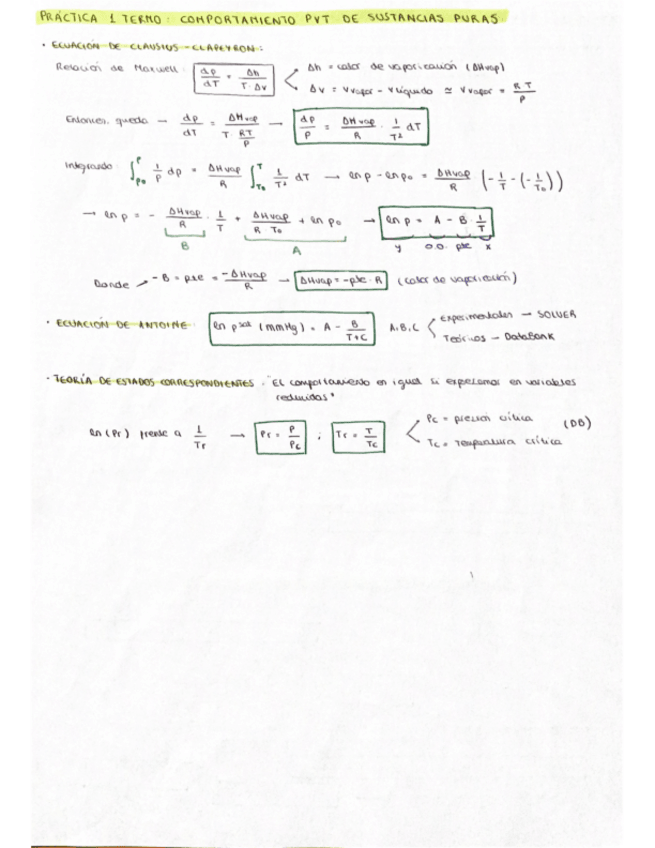 PRÁCTICA 1 TERMO: COMPORTAMIENTO PVT DE SUSTANCIAS PURAS.
· ECUACIÓN DE CLAUSIUS-CLAPEYRON:
Relación de Maxwell: dp/dT = Δh/(T·Δv) < Δh = calor de vaporización (ΔHvap)
Δv = Vvapor - Vlíquido ≃ Vvapor = RT/P
Entonces, queda → dp/dT = ΔHvap/(T·RT/P) → dp/P = ΔHvap/R · 1/T² dT
Integrando: ∫p₀^p 1/P dp = ΔHvap/R ∫T₀^T 1/T² dT → ln p - ln p₀ = ΔHvap/R (-1/T - (-1/T₀))
→ ln p = - ΔHvap/R · 1/T + ΔHvap/(R T₀) + ln p₀ → ln p = A - B · 1/T
B A y o.o. pte x
Donde → -B = pte = -ΔHvap/R → ΔHvap = -pte·R (calor de vaporización)
· ECUACIÓN DE ANTOINE: ln p^sat (mmHg) = A - B/(T+C) A,B,C < Experimentales → SOLVER
Teóricos → DataBank
· TEORÍA DE ESTADOS CORRESPONDIENTES: "El comportamiento es igual si expresamos en variables
reducidas"
ln(Pr) frente a 1/Tr → Pr = P/Pc ; Tr = T/Tc < Pc = presión crítica (DB)
Tc = Temperatura crítica